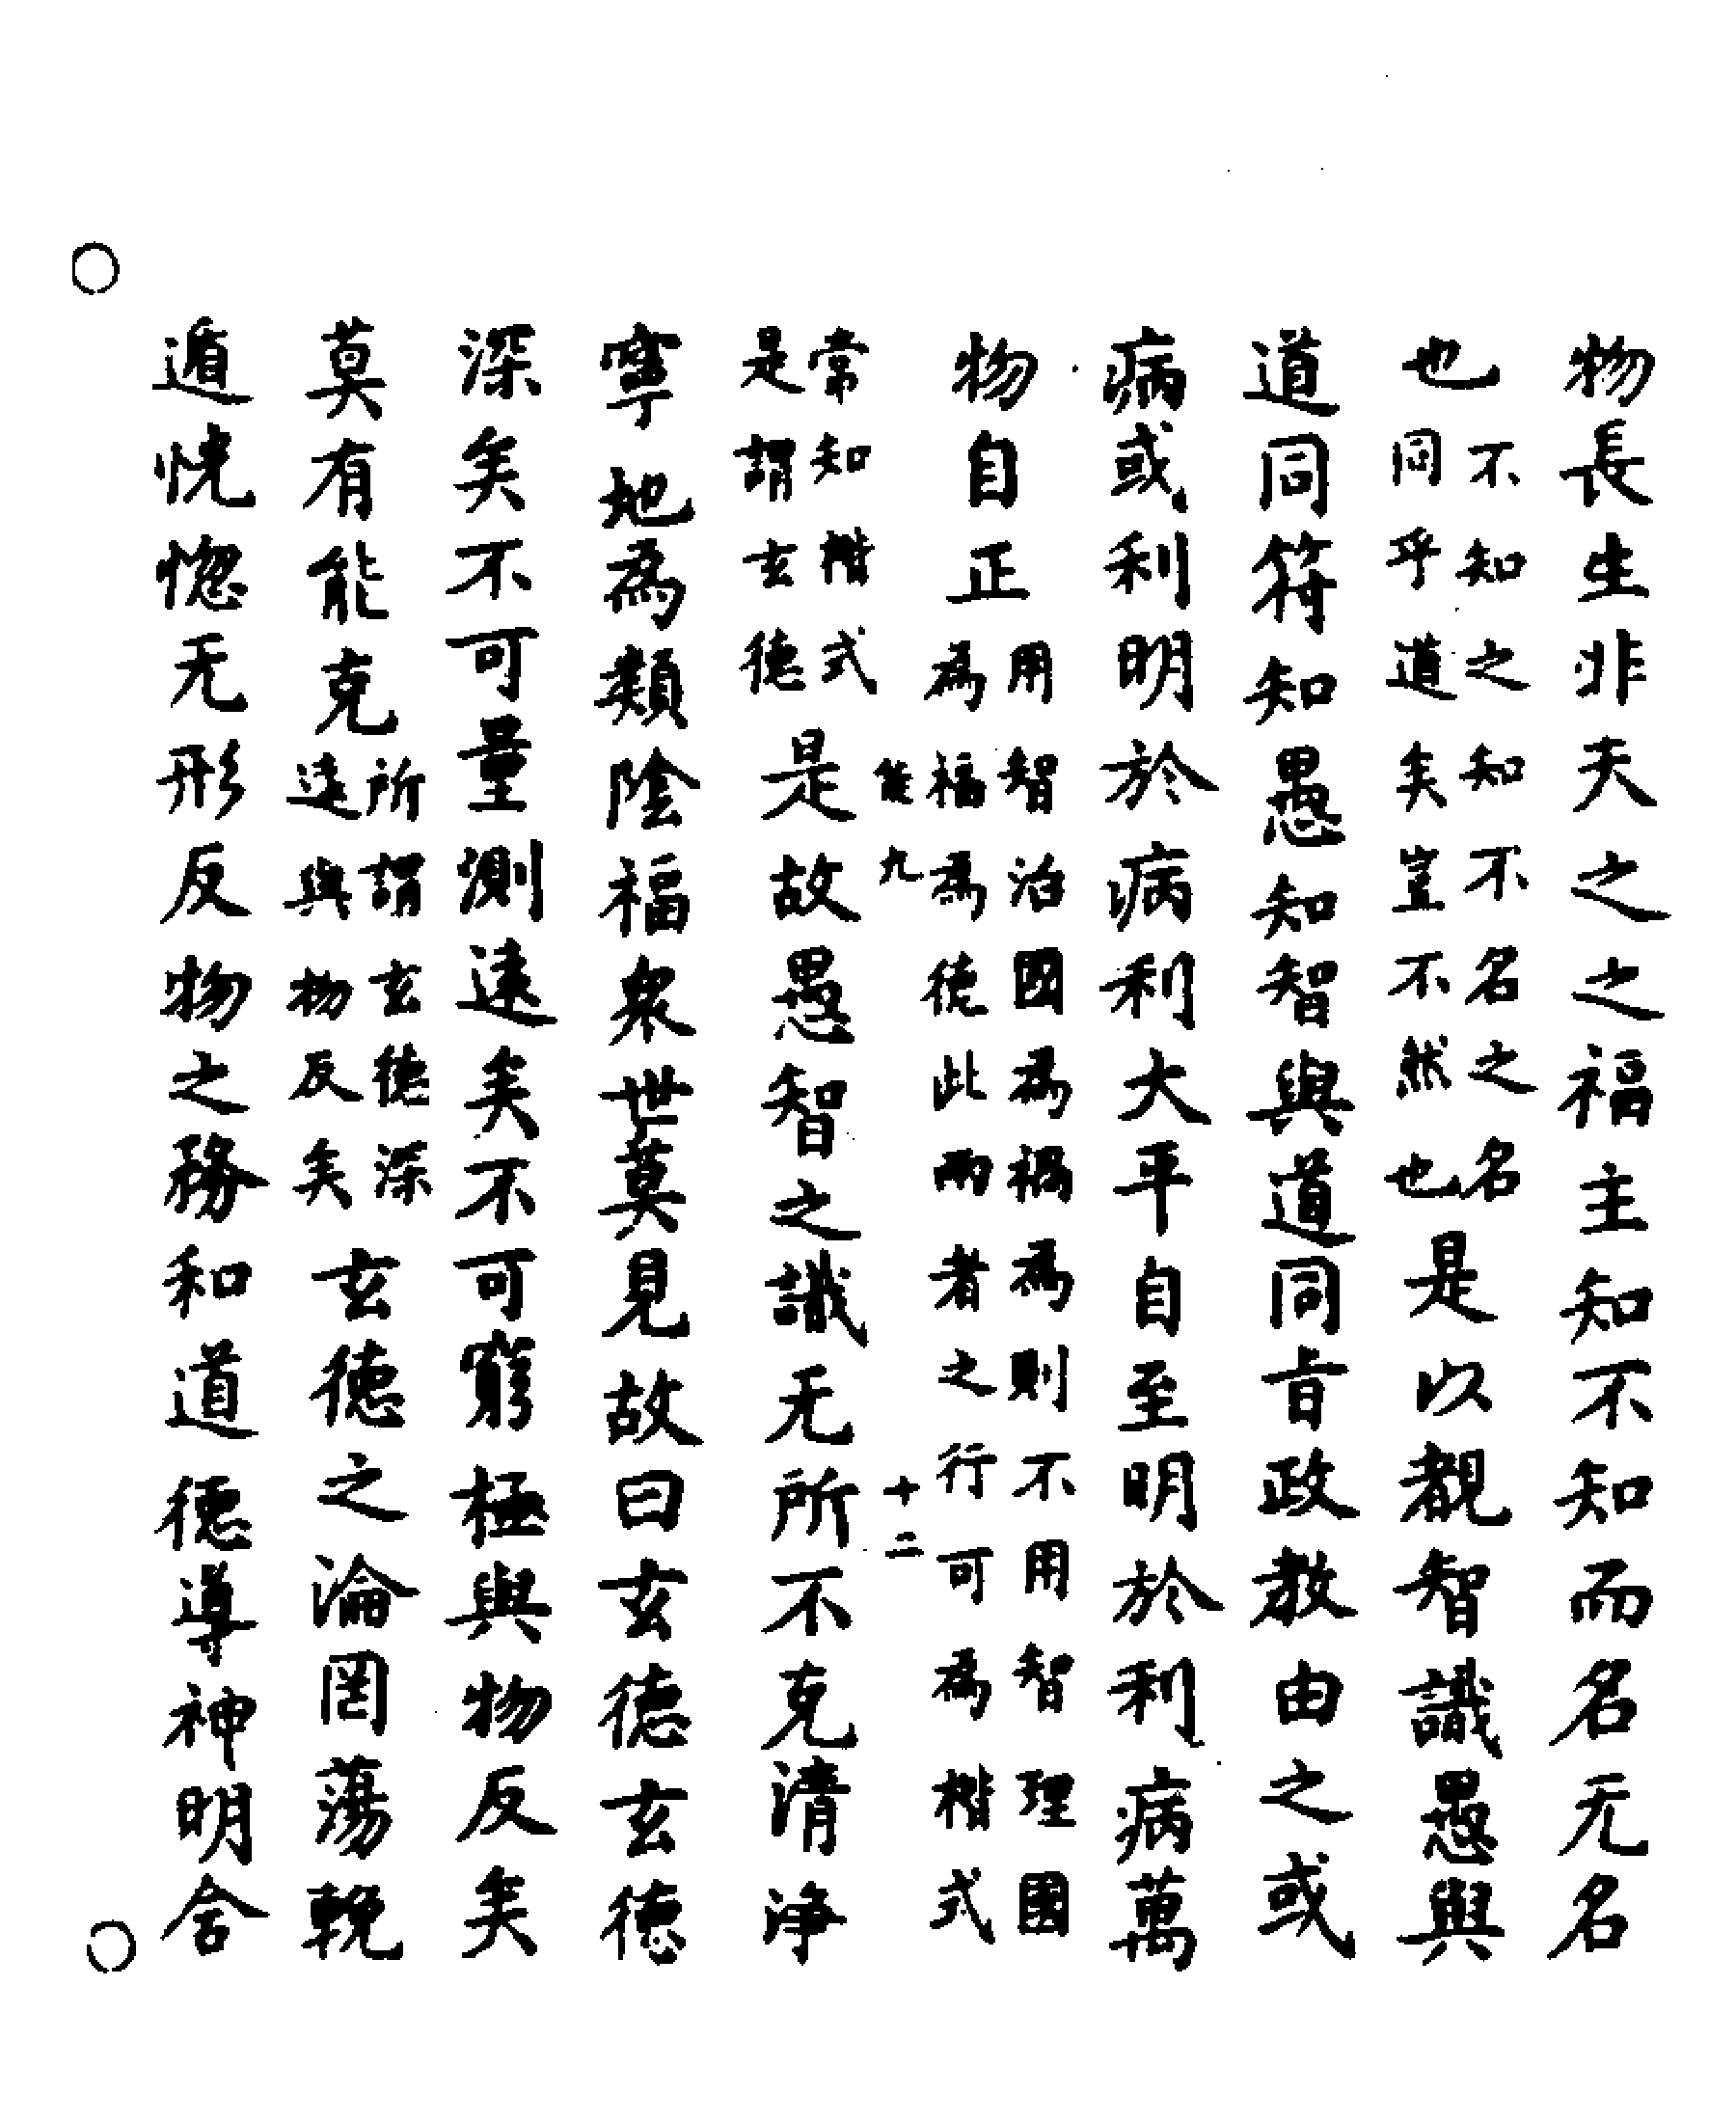 物長生非夫之之福主知不知而名无名
也不知之知不名之名同乎道矣豈不然也是以覩智識愚與
道同符知愚知智與道同旨政教由之或
病或利明於病利大平自至明於利病萬
物自正用智治國為禍為則不用智理國為福為德此兩者之行可為楷式
能九 十二
常知楷式是謂玄德是故愚智之識无所不克清浄
寧地為類陰福衆世莫見故曰玄德玄德
深矣不可量測遠矣不可窮極與物反矣
莫有能克所謂玄德深遠與物反矣玄德之淪罔蕩輓
遁恍惚无形反物之務和道德導神明含